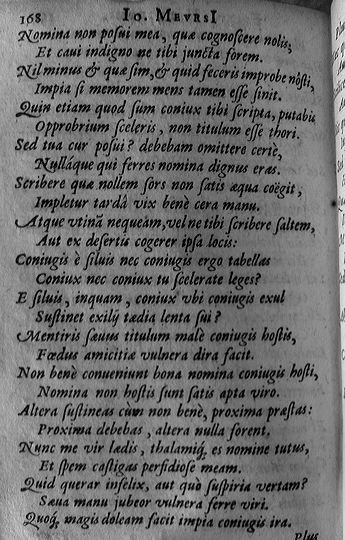 168 IO. MEVRSI
Nomina non posui mea, quæ cognoscere nolis,
Et caui indigno ne tibi juncta forem.
Nil minus & quæ sim, & quid feceris improbe nôsti,
Impia si memorem mens tamen esse sinit.
Quin etiam quod sum coniux tibi scripta, putabis
Opprobrium sceleris, non titulum esse thori.
Sed tua cur posui? debebam omittere certè,
Nulláque qui ferres nomina dignus eras.
Scribere quæ nollem sors non satis æqua coëgit,
Impletur tardâ vix benè cera manu.
Atque vtinã nequeam, vel ne tibi scribere saltem,
Aut ex desertis cogerer ipsa locis:
Coniugis è siluis nec coniugis ergo tabellas
Coniux nec coniux tu scelerate leges?
E siluis, inquam, coniux vbi coniugis exul
Sustinet exilij tædia lenta sui?
Mentiris sæuus titulum malè coniugis hostis,
Fœdus amicitiæ vulnera dira facit.
Non benè conueniunt bona nomina coniugis hosti,
Nomina non hostis sunt satis apta viro.
Altera sustineas cùm non benè, proxima præstas:
Proxima debebas, altera nulla forent.
Nunc me vir lædis, thalamiq́; es nomine tutus,
Et spem castigas perfidiose meam.
Quid querar infelix, aut quò suspiria vertam?
Sæua manu jubeor vulnera ferre viri.
Quoq́; magis doleam facit impia coniugis ira.
Plus